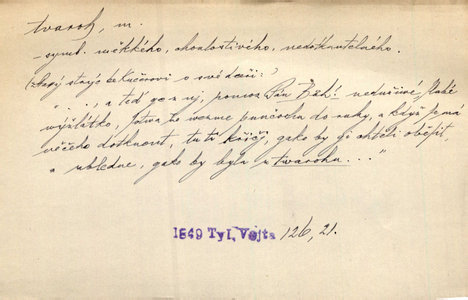 tvaroh, m.
– symb. měkkého, choulostivého, nedotknutelného.
starý o své dceři:
"..., a teď pomoz Pán Bůh! neduživé, slabé
vyžlátko, jotva že vezme punčochu do ruky, a když se má
něčeho dotknout, tu křičí, jako by ji chtěli oběsit
a ubledne, jako by byla z tvarohu..."
1549 Tyl, Vojta 12b, 21.